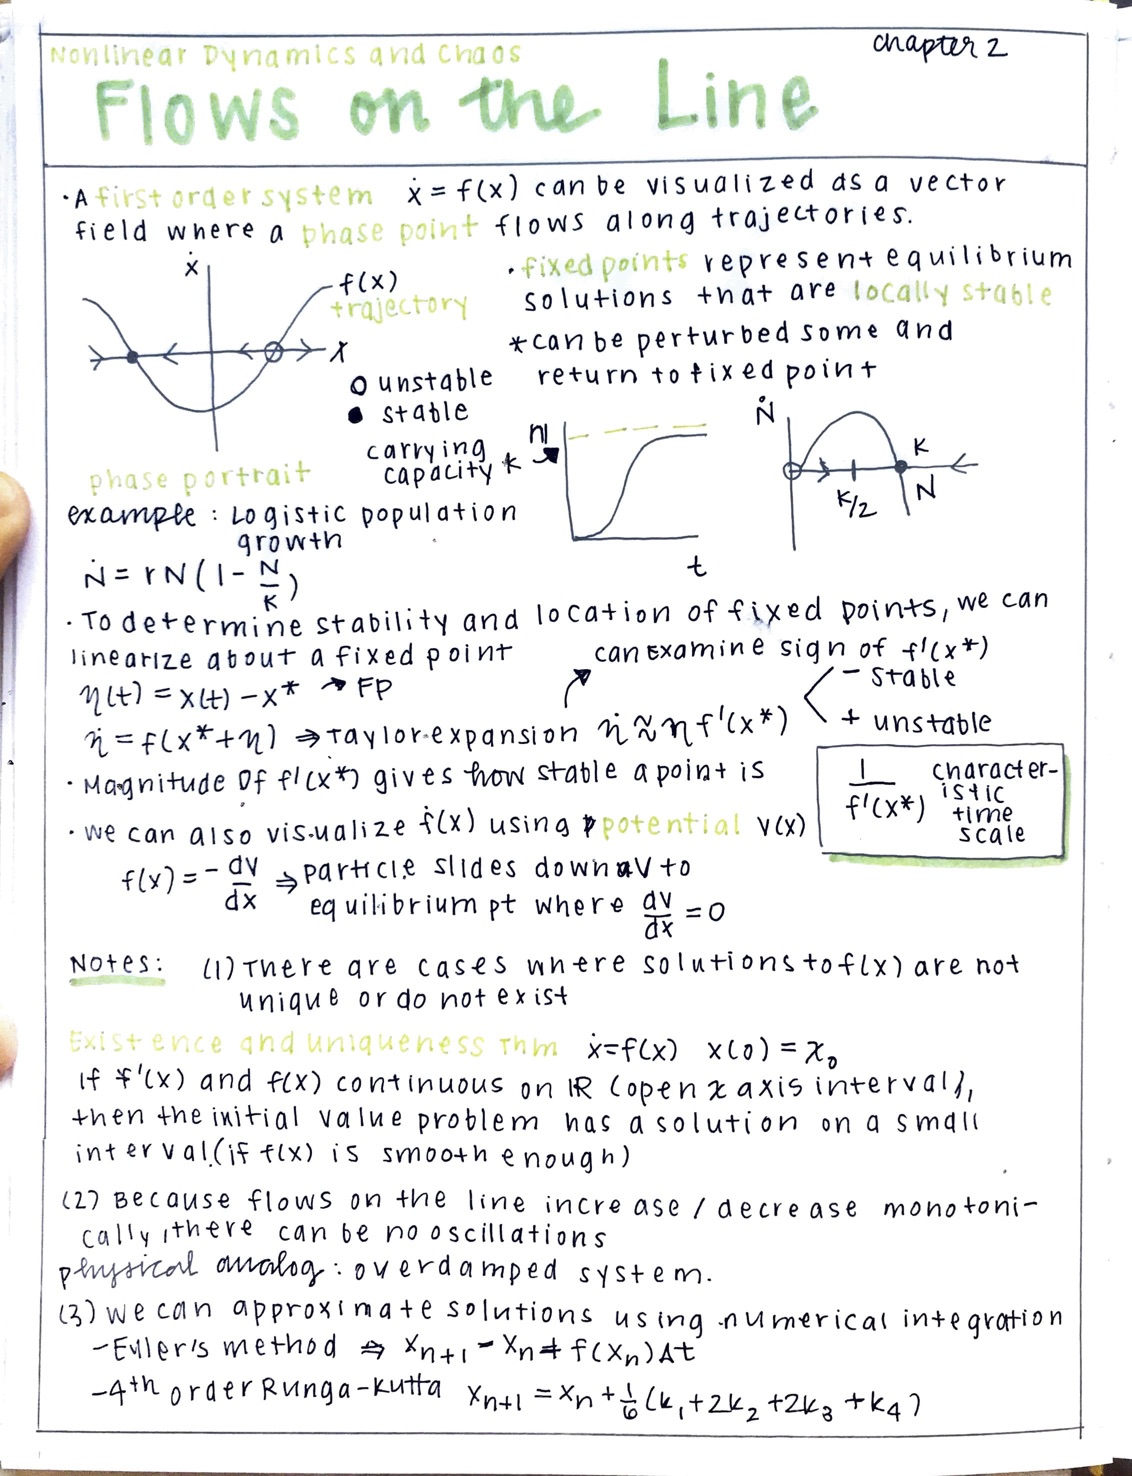 chapter 2
Nonlinear Dynamics and Chaos
Flows on the Line
· A first order system ẋ = f(x) can be visualized as a vector
field where a phase point flows along trajectories.
ẋ
f(x)
trajectory
x
o unstable
● stable
phase portrait
· fixed points represent equilibrium
solutions that are locally stable
*can be perturbed some and
return to fixed point
carrying
capacity *
n
t
Ṅ
K
K/2
N
example: Logistic population
growth
Ṅ = rN(1 - N/K)
· To determine stability and location of fixed points, we can
linearize about a fixed point
can examine sign of f'(x*)
- stable
+ unstable
η(t) = x(t) - x* → FP
η̇ = f(x* + η) ⇒ Taylor expansion η̇ ≈ η f'(x*)
· Magnitude of f'(x*) gives how stable a point is
1/f'(x*) character-
istic
time
scale
· we can also visualize ḟ(x) using potential V(x)
f(x) = - dV/dx ⇒ particle slides down V to
equilibrium pt where dV/dx = 0
Notes: (1) There are cases where solutions to f(x) are not
unique or do not exist
Existence and uniqueness Thm ẋ = f(x) x(0) = x₀
If f'(x) and f(x) continuous on ℝ (open x axis interval),
then the initial value problem has a solution on a small
interval. (if f(x) is smooth enough)
(2) Because flows on the line increase / decrease monotoni-
cally, there can be no oscillations
physical analog: overdamped system.
(3) we can approximate solutions using numerical integration
- Euler's method ⇒ xₙ₊₁ - xₙ + f(xₙ)Δt
- 4th order Runga-Kutta xₙ₊₁ = xₙ + 1/6 (k₁ + 2k₂ + 2k₃ + k₄)